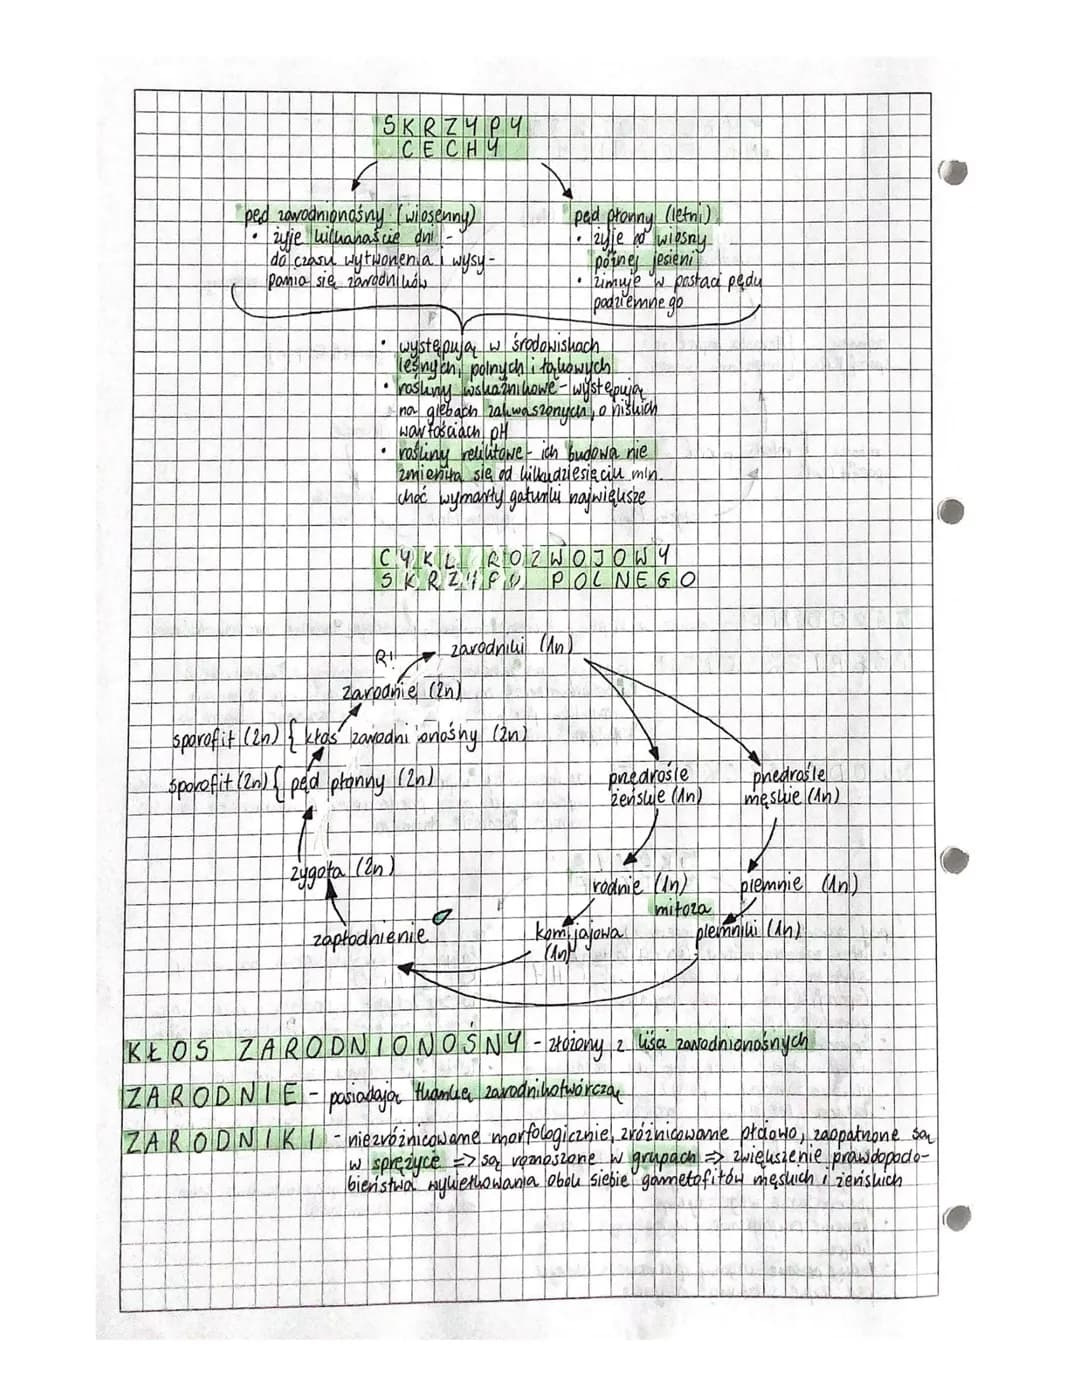 SKRZYPY
CECHY
pęd zarodnionośny (wiosenny)
• żyje kilkanaście dni -
do czasu wytworzenia i wysy-
pania się zarodników
pęd płonny (letni)
• żyje od wiosny
późnej jesieni
• zimuje w postaci pędu
podziemnego
• występują w środowiskach
leśnych, polnych i łąkowych
• rośliny wskaźnikowe - występują
na glebach zakwaszonych, o niskich
wartościach pH
• rośliny reliktowe - ich budowa nie
zmieniła się od kilkudziesięciu mln.
choć wymarły gatunki największe
CYKL ROZWOJOWY
SKRZYPU POLNEGO
R!
zarodniki (1n)
zarodnie (2n)
sporofit (2n) { kłos zarodnionośny (2n)
sporofit (2n) { pęd płonny (2n)
przedrośle
żeńskie (1n)
przedrośle
męskie (1n)
zygota (2n)
rodnie (1n)
plemnie (1n)
mitoza
zapłodnienie
kom. jajowa
(1n)
plemniki (1n)
KŁOS ZARODNIONOŚNY - złożony z liści zarodnionośnych
ZARODNIE - posiadają tkankę zarodnikotwórczą
ZARODNIKI - niezróżnicowane morfologicznie, zróżnicowane płciowo, zaopatrzone są
w sprężyce => są roznoszone w grupach => zwiększenie prawdopodo-
bieństwa wykiełkowania obok siebie gametofitów męskich i żeńskich